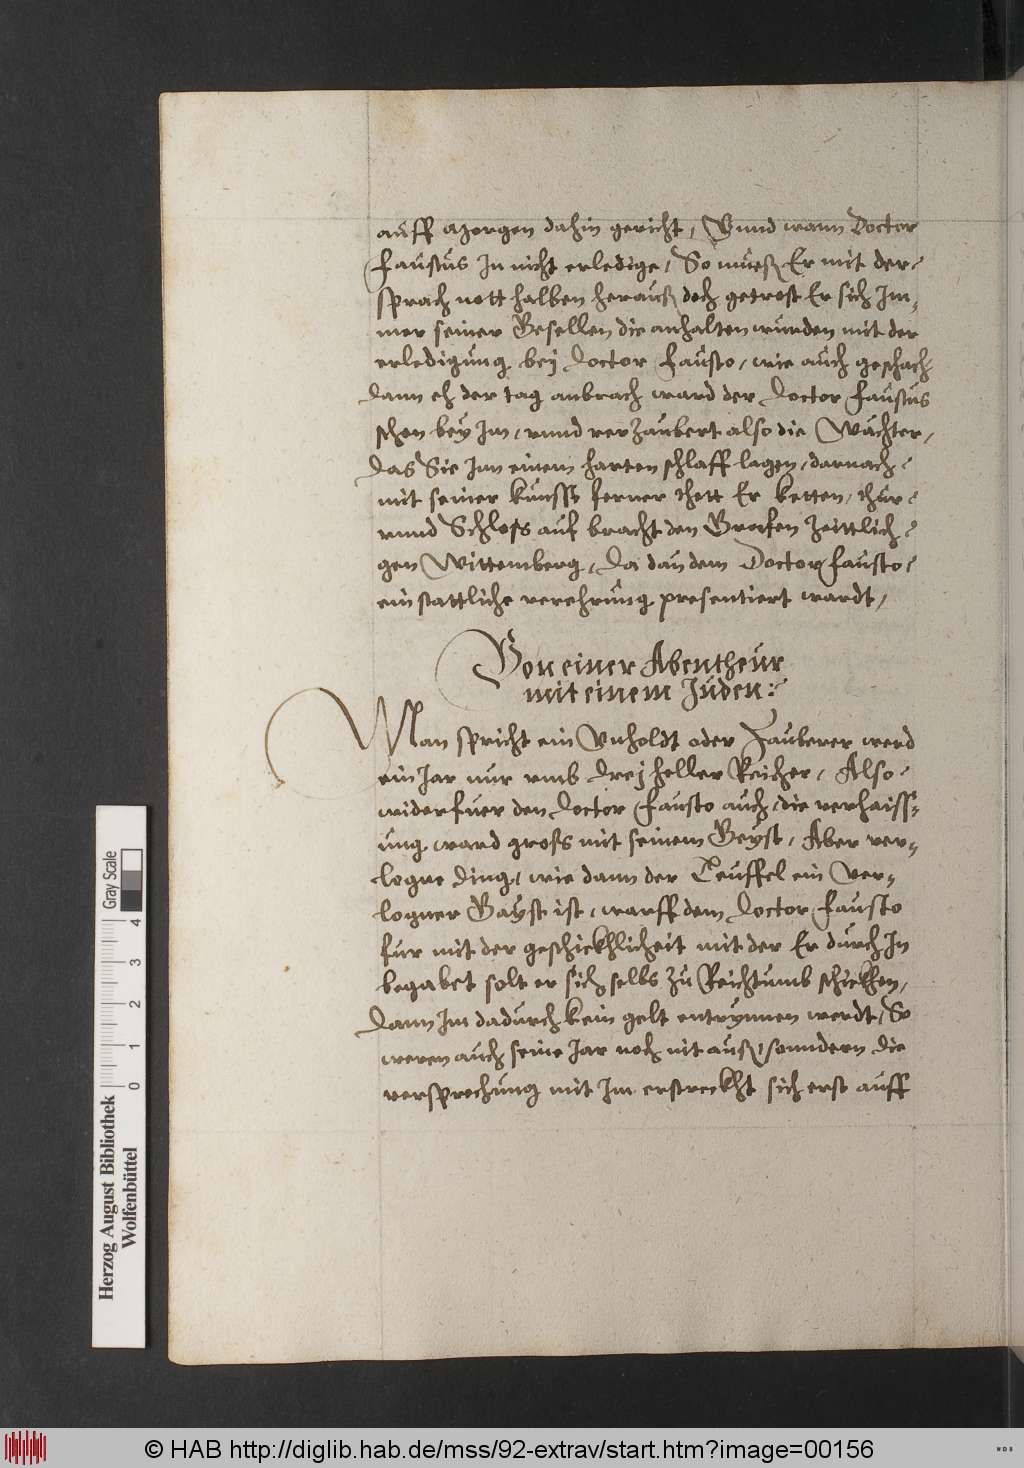 auff Morgen dahin gericht, Vnnd wann Doctor
Faustus In nicht erledige, So mueß Er mit der
sprach nott halben herauß doch getrost Er sich Im-
mer seiner Gesellen die anhalten wurden mit der
erledigung bej Doctor Fausto, wie auch geschach
Dann eh der tag anbrach ward der Doctor Faustus
schon bey Im, vnnd verzaubert also die Wächter,
Das Sie Inn einem harten schlaff lagen, darnach
mit seiner kunsst ferner thett Er ketten, thür
vnnd Schloss auf bracht den Grafen zeittlich
gen Wittemberg, Da dan dem Doctor Fausto
ein stattliche verehrung presentiert wardt,
Von einer Abentheur
mit einem Juden:
Man spricht ein Vnholdt oder Zauberer werd
ein Jar nur vmb Drej heller Reicher, Also
widerfuer den Doctor Fausto auch, die verhaiss-
ung ward gross mit seinem Geyst, Aber ver-
logne Ding, wie dann der Teuffel ein Ver-
logner Gayst ist, warff dem Doctor Fausto
fur mit der geschickhlicheit mit der Er durch In
begabet solt er sich selbs zu Reichtumb schickhen,
Dann Im dadurch kein gelt entrynnen werdt, So
weren auch seine Jar noch nit auß, sonndern die
versprechung mit Im erstreckht sich erst auff
Herzog August Bibliothek
Wolfenbüttel
0 1 2 3 4
Gray Scale
© HAB http://diglib.hab.de/mss/92-extrav/start.htm?image=00156